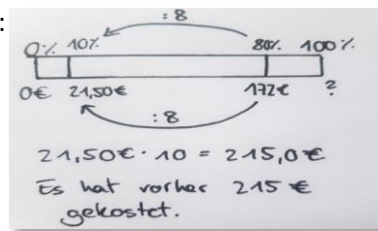 :
: 8
0% 10% 80% 100%
0€ 21,50€ 172€ ?
: 8
21,50€ · 10 = 215,0€
Es hat vorher 215 €
gekostet.